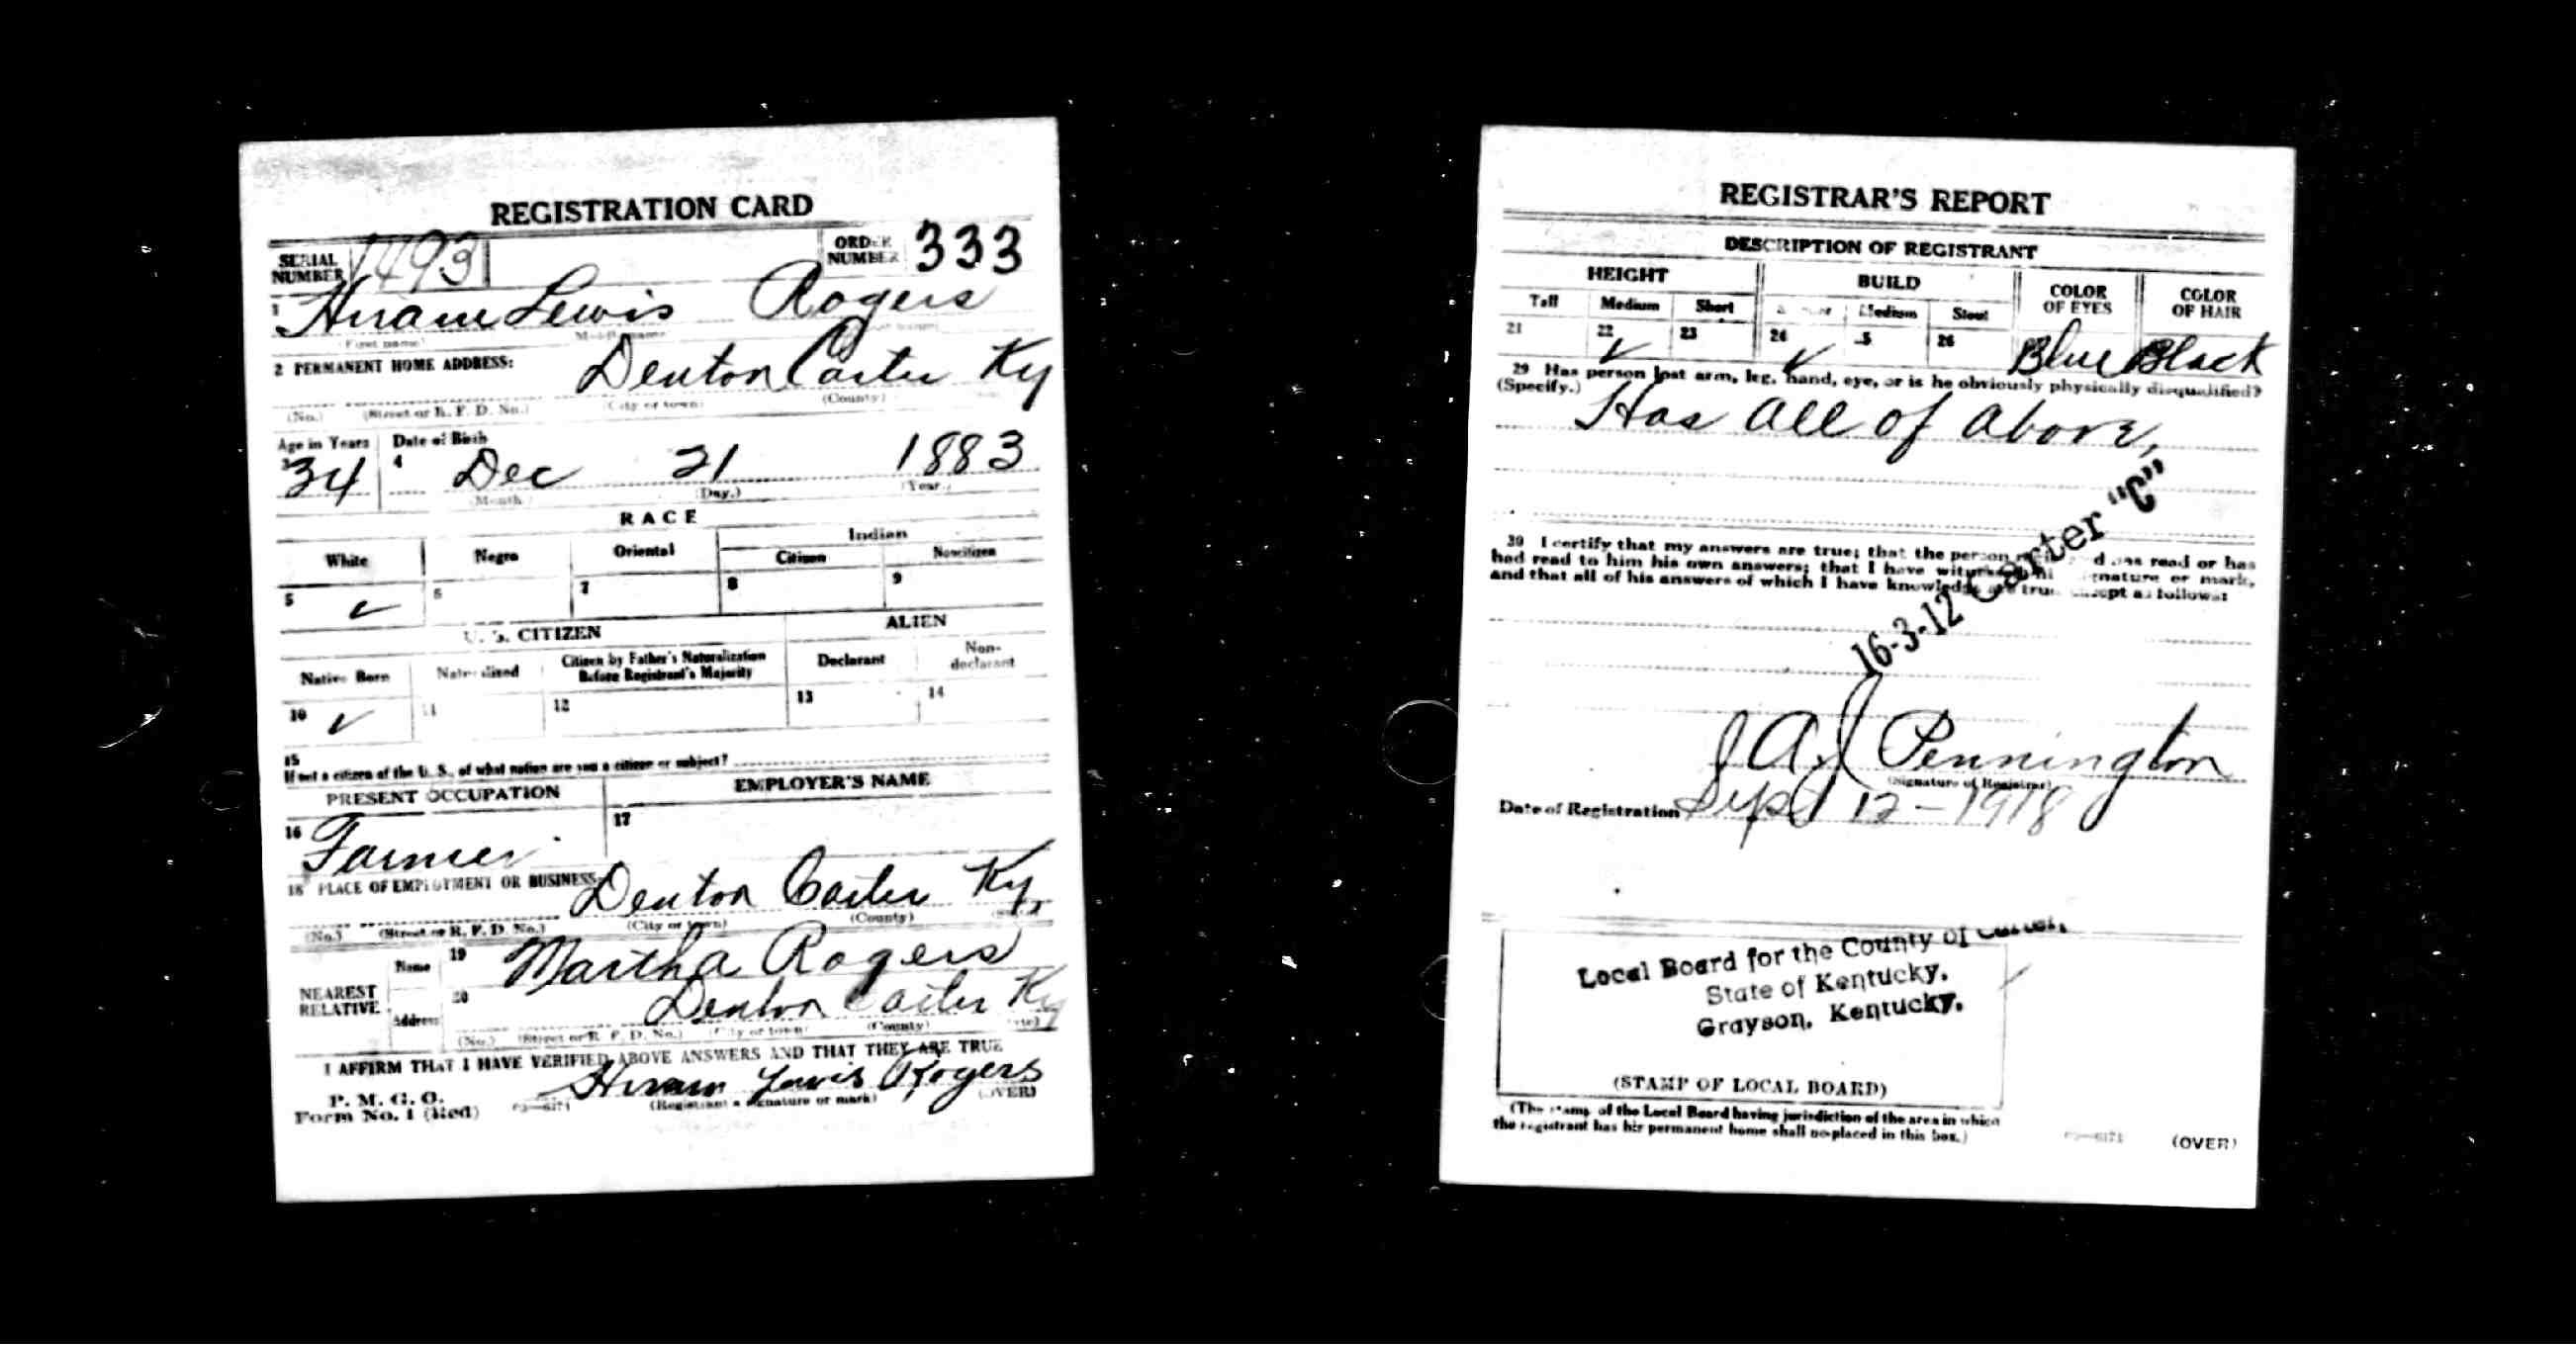 REGISTRATION CARD
SERIAL NUMBER 1493 ORDER NUMBER 333
1 Hiram Lewis Rogers
(First name) (Middle name)
2 PERMANENT HOME ADDRESS: Denton Carter Ky
(No.) (Street or R. F. D. No.) (City or town) (County)
Age in Years Date of Birth
3 34 4 Dec 21 1883
(Month) (Day.) (Year.)
RACE
White Negro Oriental Indian
Citizen Noncitizen
5 ✓ 6 7 8 9
U. S. CITIZEN ALIEN
Native Born Naturalized Citizen by Father's Naturalization Before Registrant's Majority Declarant Non-declarant
10 ✓ 11 12 13 14
15
If not a citizen of the U. S., of what nation are you a citizen or subject?
PRESENT OCCUPATION EMPLOYER'S NAME
16 Farmer 17
18 PLACE OF EMPLOYMENT OR BUSINESS: Denton Carter Ky,
(No.) (Street or R. F. D. No.) (City or town) (County) (State)
NEAREST RELATIVE Name 19 Martha Rogers
Address 20 Denton Carter Ky
(No.) (Street or R. F. D. No.) (City or town) (County) (State)
I AFFIRM THAT I HAVE VERIFIED ABOVE ANSWERS AND THAT THEY ARE TRUE
P. M. G. O.
Form No. 1 (Red) 03—6171 Hiram Lewis Rogers
(Registrant's signature or mark) (OVER)
REGISTRAR'S REPORT
DESCRIPTION OF REGISTRANT
HEIGHT BUILD COLOR OF EYES COLOR OF HAIR
Tall Medium Short Medium Stout
21 22 ✓ 23 24 ✓ 25 26 Blue Black
29 Has person lost arm, leg, hand, eye, or is he obviously physically disqualified?
(Specify.) Has all of above,
30 I certify that my answers are true; that the person registered has read or has
had read to him his own answers; that I have witnessed his signature or mark,
and that all of his answers of which I have knowledge are true, except as follows:
16-3-12 Carter "C"
Pennington
(Signature of Registrar)
Date of Registration Sept 12—1918
Local Board for the County of Carter,
State of Kentucky.
Grayson, Kentucky.
(STAMP OF LOCAL BOARD)
(The stamp of the Local Board having jurisdiction of the area in which
the registrant has his permanent home shall be placed in this box.)
03—6171 (OVER)